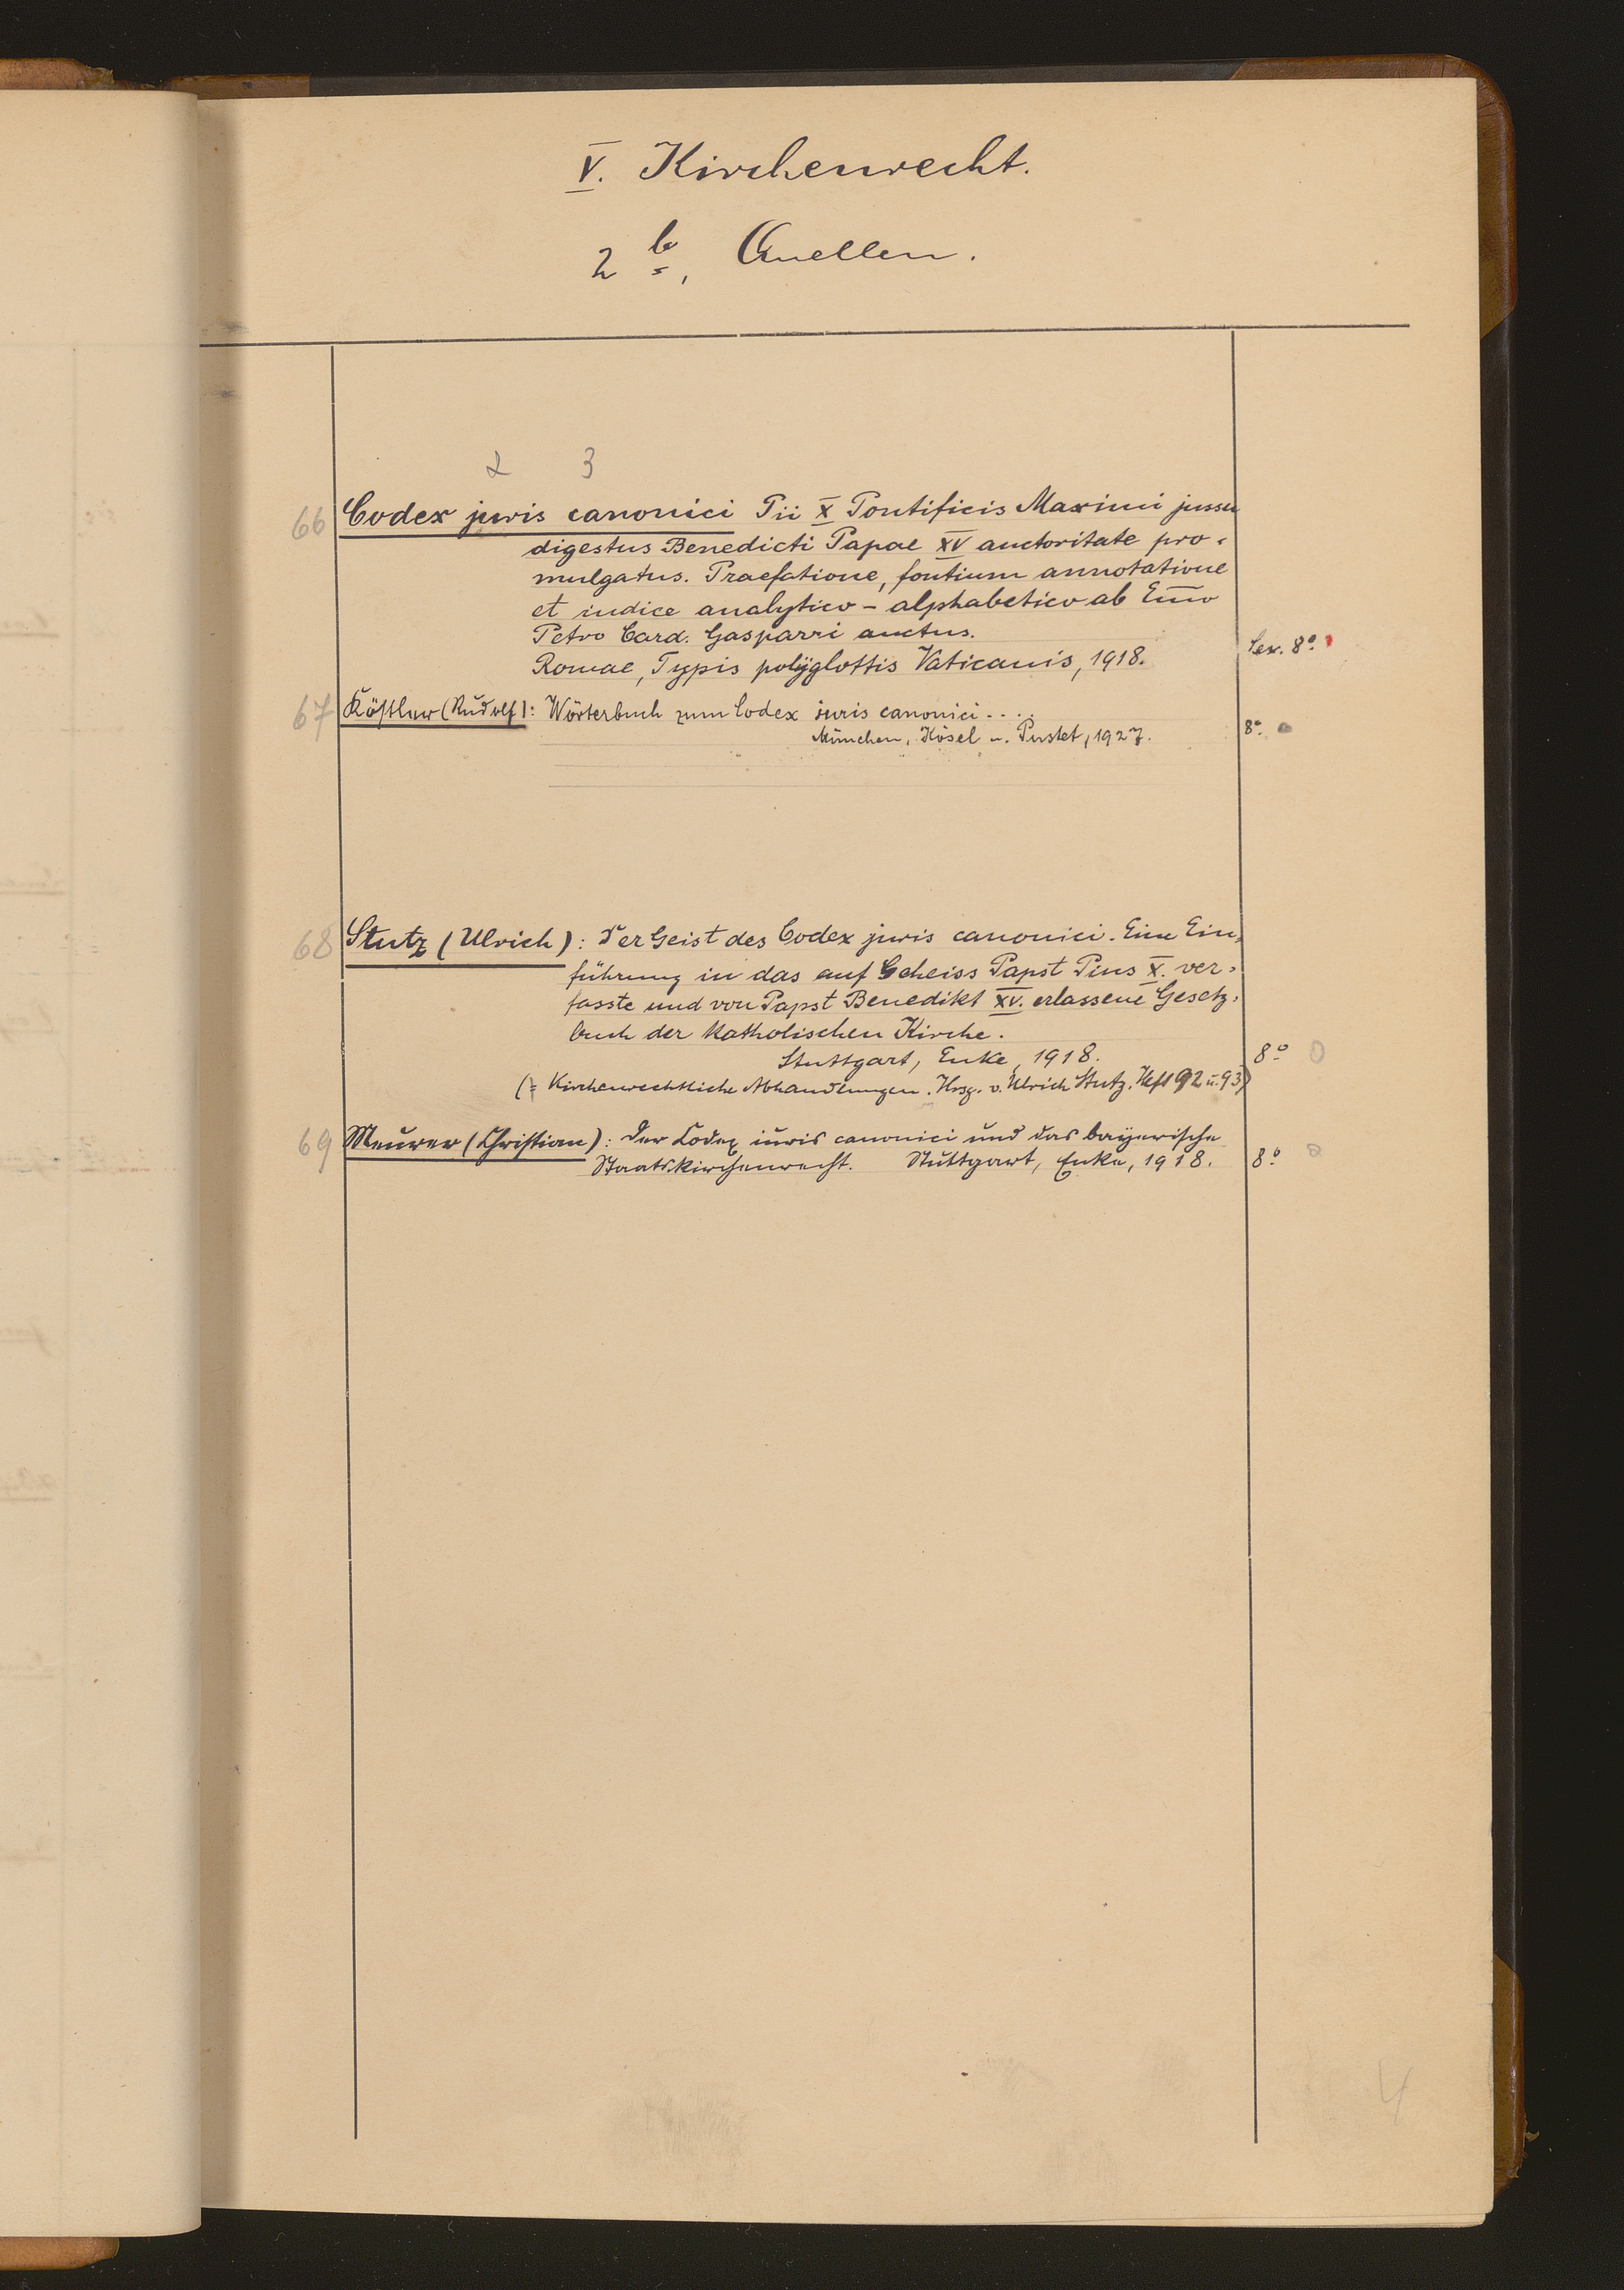 V. Kirchenrecht.
2 b, Quellen.
2 3
66 Codex juris canonici Pii X Pontificis Maximi jussu
digestus Benedicti Papae XV auctoritate pro-
mulgatus. Praefatione, fontium annotatione
et indice analytico - alphabetico ab Emo
Petro Card. Gasparri auctus.
Romae, Typis polyglottis Vaticanis, 1918. Lex. 8º
67 Köstler (Rudolf): Wörterbuch zum Codex juris canonici....
München, Kösel u. Pustet, 1927. 8º
68 Stutz (Ulrich): Der Geist des Codex juris canonici. Eine Ein-
führung in das auf Geheiss Papst Pius X. ver-
fasste und von Papst Benedikt XV. erlassene Gesetz-
buch der katholischen Kirche.
Stuttgart, Enke, 1918. 8º
(= Kirchenrechtliche Abhandlungen. Hrsg. v. Ulrich Stutz. Heft 92 u. 93)
69 Meurer (Christian): Der Codex iuris canonici und das bayerische
Staatskirchenrecht. Stuttgart, Enke, 1918. 8º
4